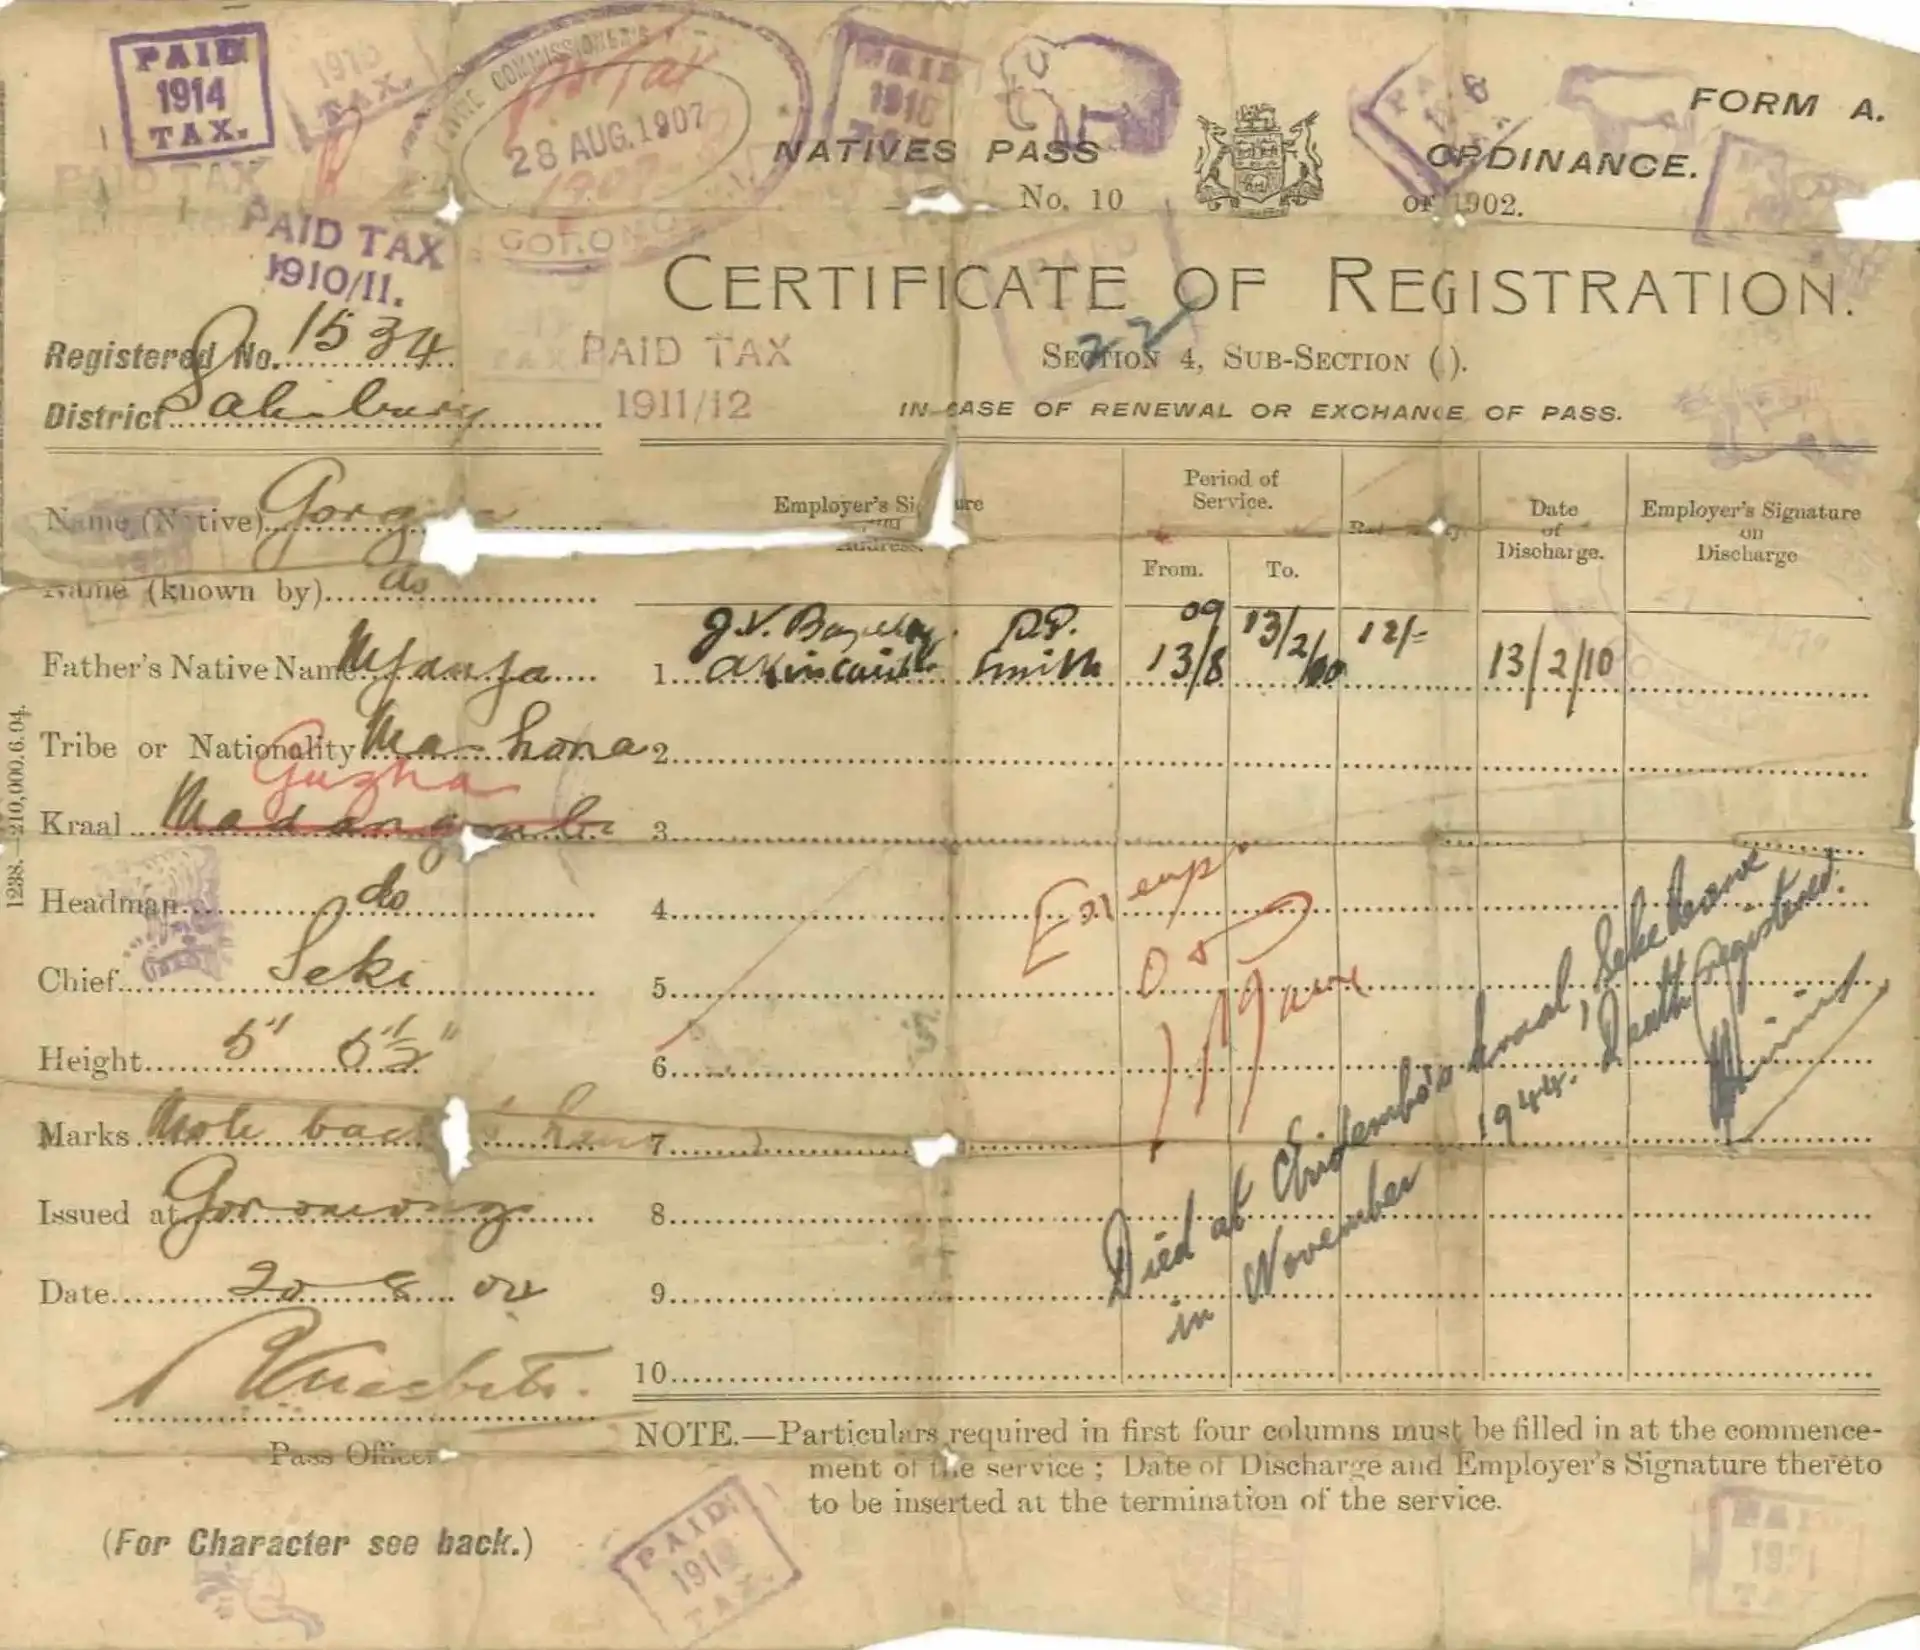 PAID
1914
TAX.
TAX.
COMMISSIONER'S
28 AUG. 1907
PAID TAX
PAID TAX
1910/11.
PAID TAX
1911/12
FORM A.
NATIVES PASS ORDINANCE.
No. 10 of 1902.
CERTIFICATE OF REGISTRATION.
SECTION 4, SUB-SECTION ( ).
22
IN CASE OF RENEWAL OR EXCHANGE OF PASS.
Registered No. 1534
District Salisbury
Name (Native)
Name (known by) do
Father's Native Name
Tribe or Nationality Mashona
Guzha
Kraal
Headman do
Chief Seki
Height 5' 5½"
Marks Mole back
Issued at Goromonzi
Date 20 8 04
Pass Officer
(For Character see back.)
1238.—210,000.6.04.
Employer's Signature
and
Address.
Period of
Service.
From. To.
Date
of
Discharge.
Employer's Signature
on
Discharge
09
1 Smith 13/8 13/2/10 12/= 13/2/10
2
3
4
5
6
7
8
9
10
Exemp
Died at Chidembo's kraal, Seke Reserve
in November 1944. Death registered.
NOTE.—Particulars required in first four columns must be filled in at the commence-
ment of the service ; Date of Discharge and Employer's Signature thereto
to be inserted at the termination of the service.
PAID
TAX.
PAID